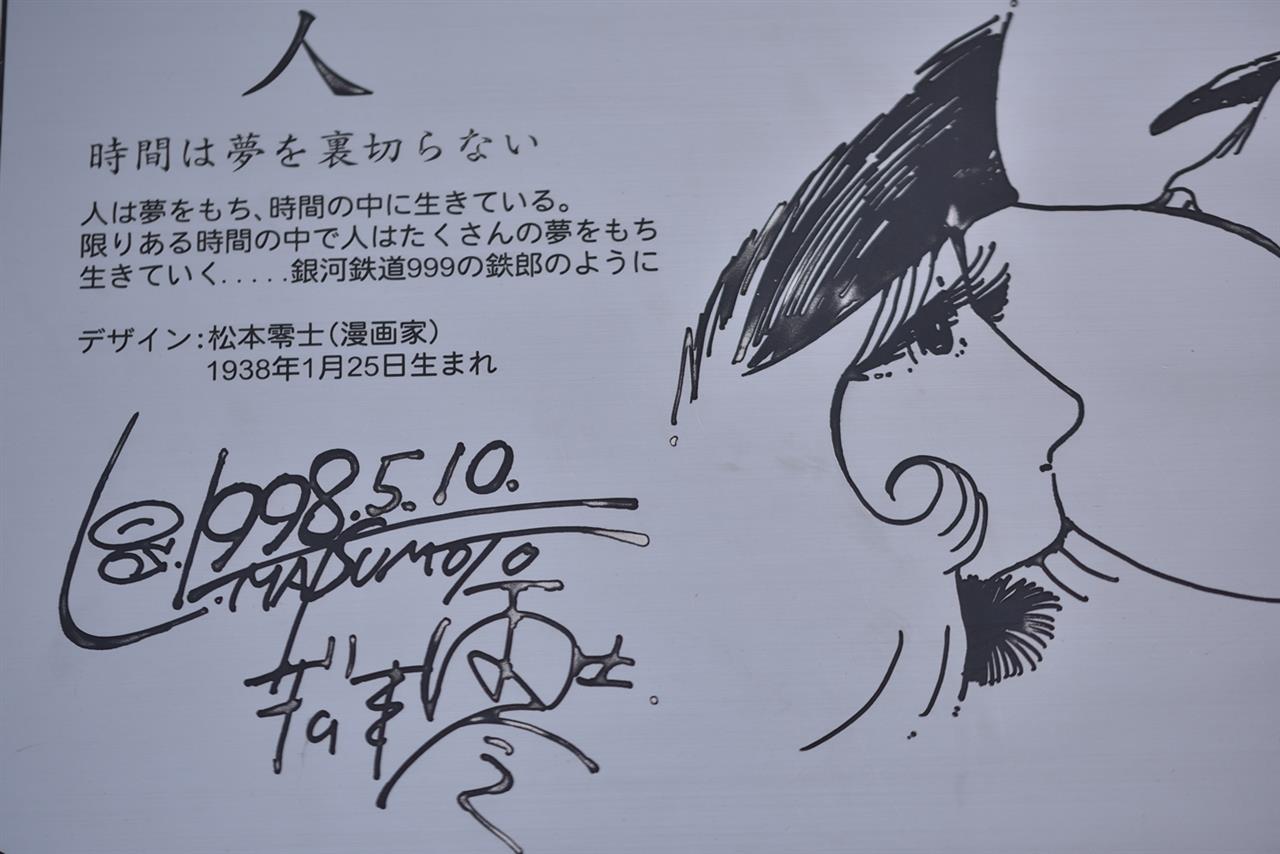 人
時間は夢を裏切らない
人は夢をもち、時間の中に生きている。
限りある時間の中で人はたくさんの夢をもち
生きていく.....銀河鉄道999の鉄郎のように
デザイン：松本零士（漫画家）
1938年1月25日生まれ
1998.5.10.
MATSUMOTO
松本零士